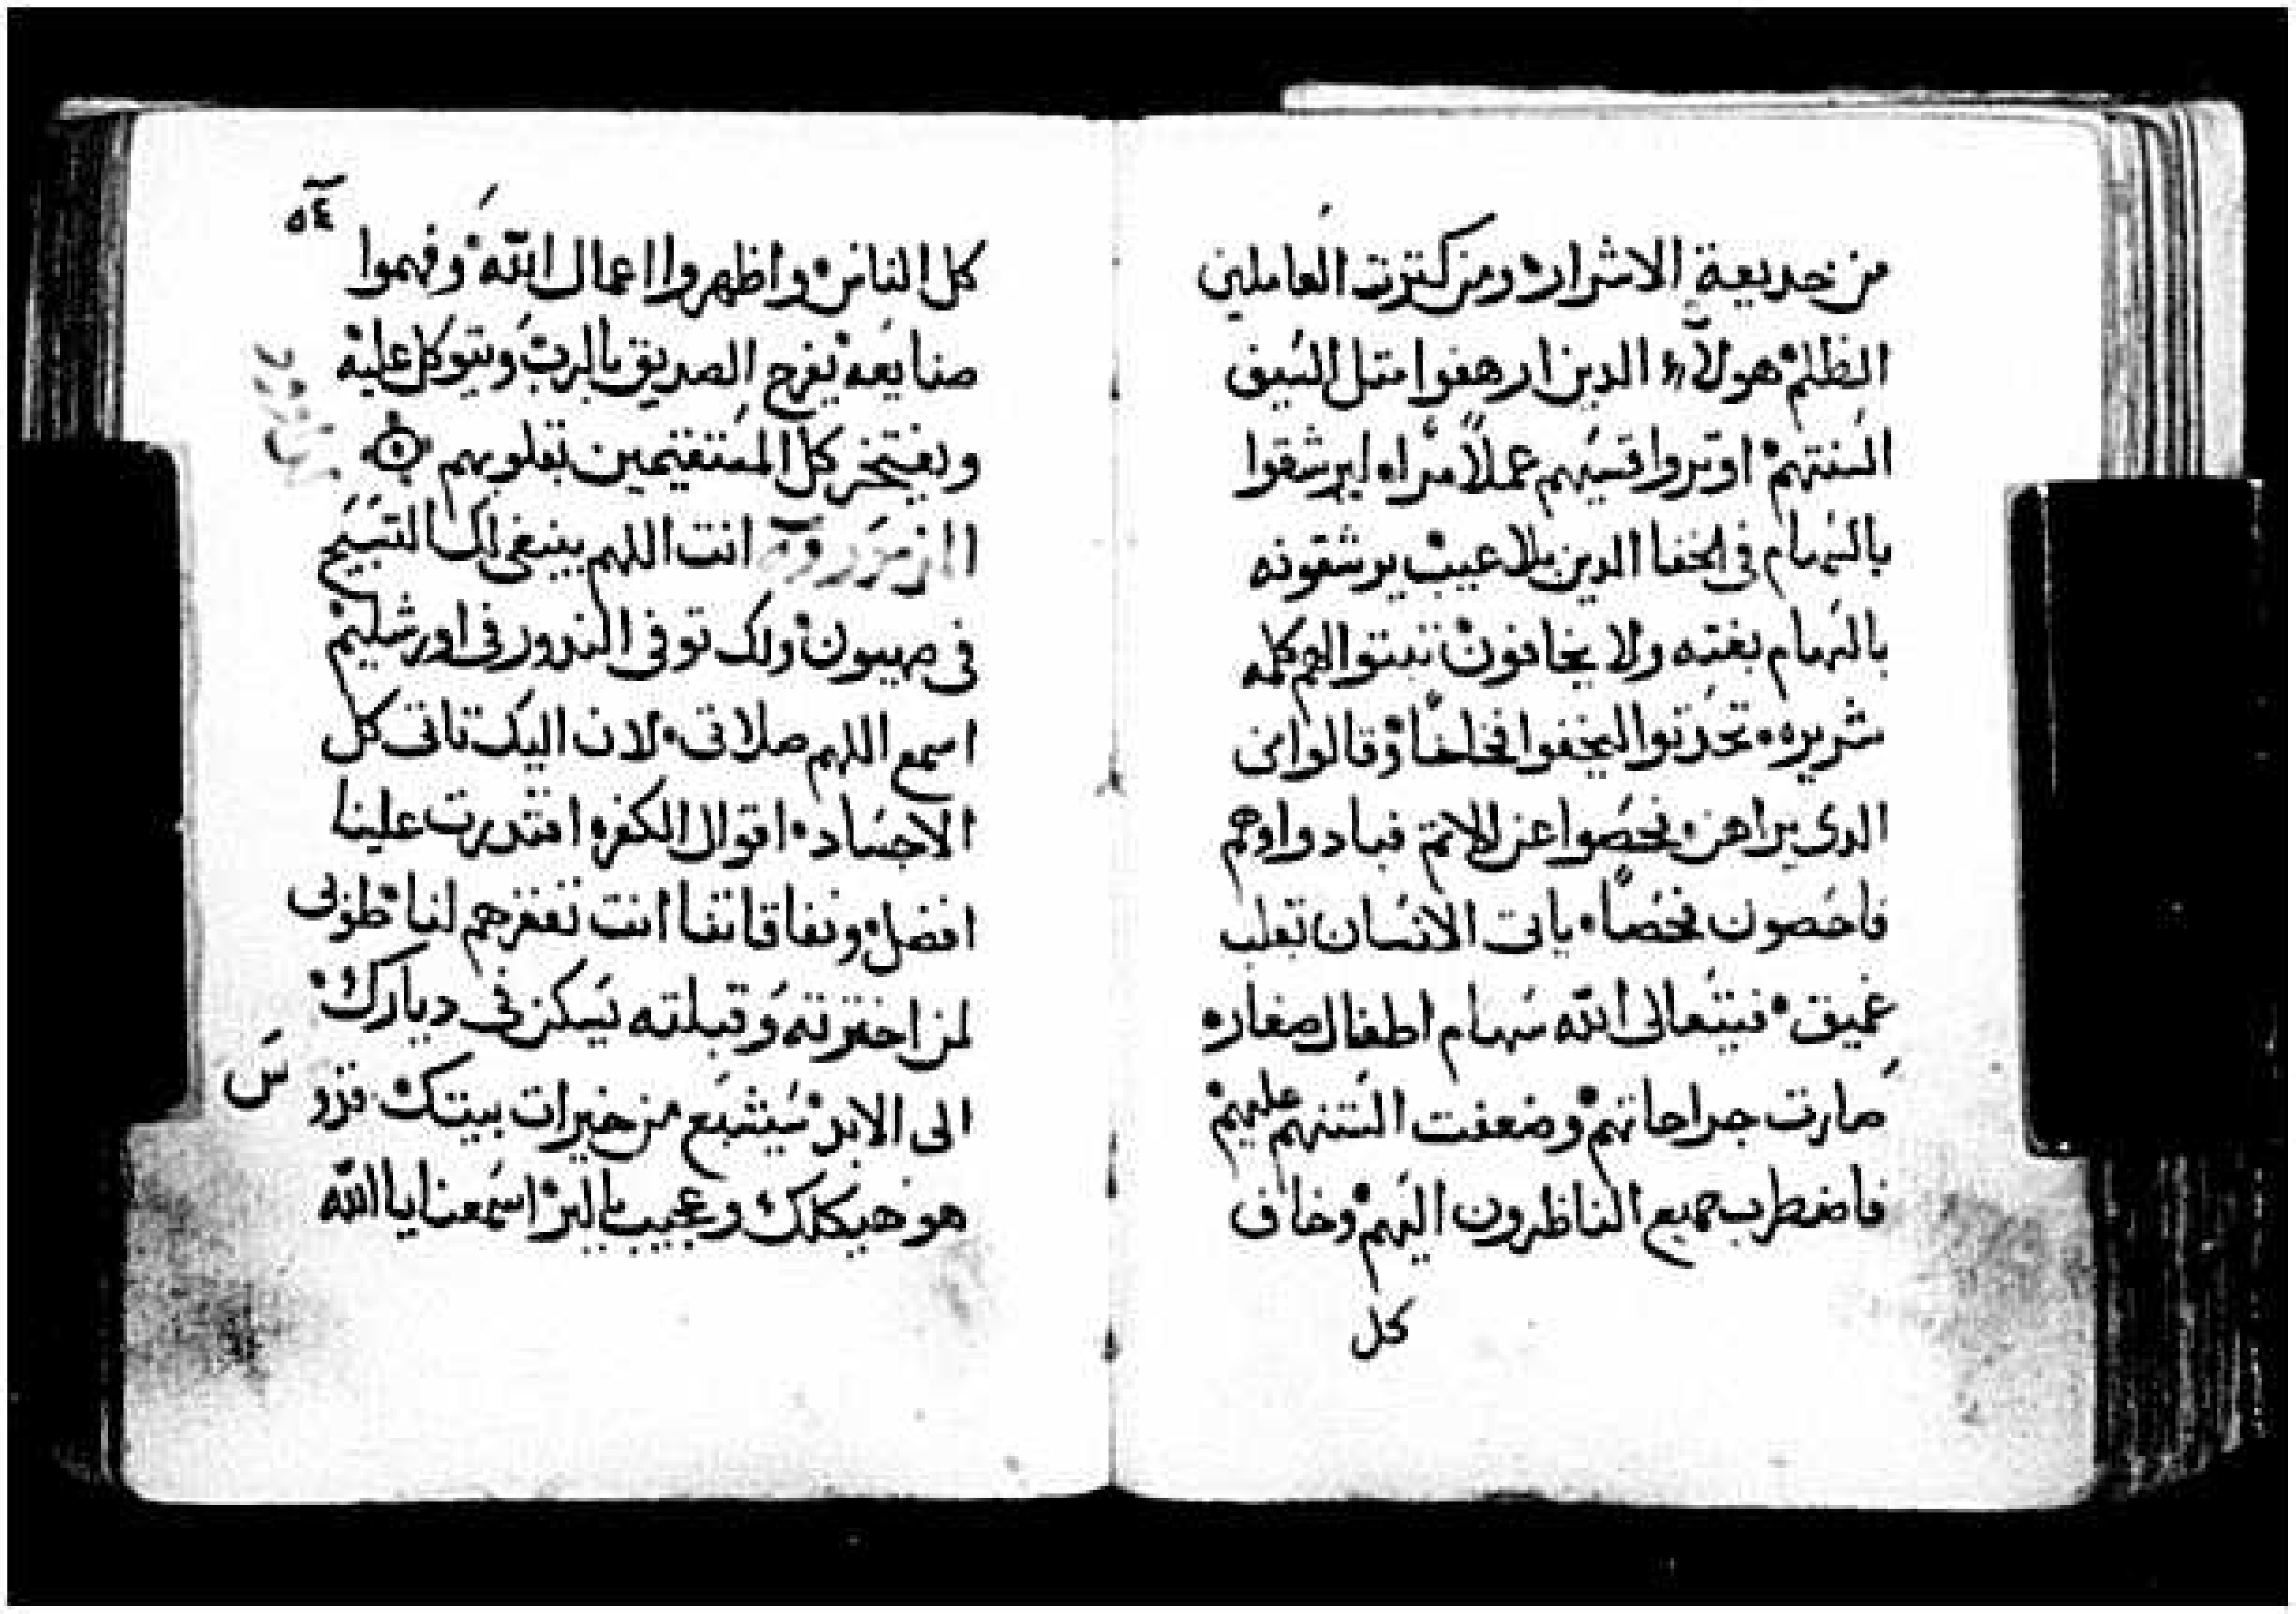 من خديعة الاشرار ومن كترت العاملين
الظلم هولآء الدين ارهفوا متل السيف
السنتهم اوتروا قسيهم عملاً مراه ليرشقوا
بالسهام فى الخفا الدين بلا عيب يرشقونه
بالسهام بغته ولا يخافون تبتوا لهم كلمه
شريره تحدتوا ليخفوا فخاخاً وقالوا من
الدى يراهن فحصوا عن الاتم فبادوا وهم
فاحصون فحصاً ياتى الانسان بقلب
عميق فيتعالى الله سهام اطفال صغار
صارت جراحاتهم وضعفت السنتهم عليهم
فاضطرب جميع الناظرون اليهم وخاف
كل
٥٤
كل الناس واظهروا اعمال الله وفهموا
صنايعه يفرح الصديق بالرب ويتوكل عليه
ويفتخر كل المستقيمين بقلوبهم
المزمور انت اللهم ينبغى لك التسبيح
فى صهيون ولك توفى الندور فى اورشليم
اسمع اللهم صلاتى لان اليك تاتى كل
الاجساد اقوال الكفره اقتدرت علينا
افضل ونفاقاتنا انت تغفرهم لنا طوبى
لمن اخترته وقبلته يسكن فى ديارك
الى الابد سيشبع من خيرات بيتك قدوس
هو هيكلك وعجيب بالبر اسمعنا يا الله